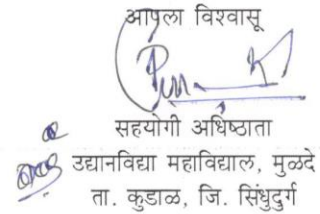 आपला विश्वासू
सहयोगी अधिष्ठाता
उद्यानविद्या महाविद्याल, मुळदे
ता. कुडाळ, जि. सिंधुदुर्ग